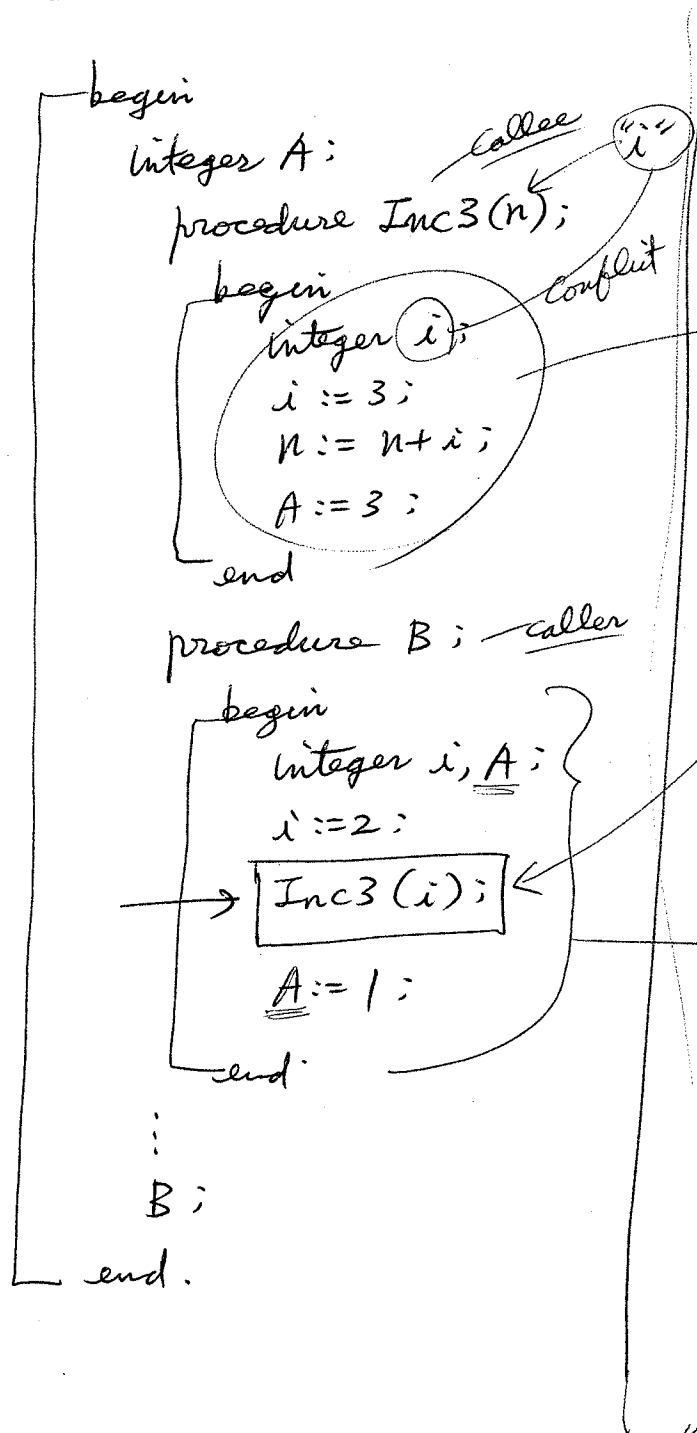 begin
integer A;
callee "i"
procedure Inc3(n);
begin
conflict
integer i;
i := 3;
n := n+i;
A := 3;
end
procedure B; caller
begin
integer i, A;
i := 2;
Inc3(i);
A := 1;
end
⋮
B;
end.